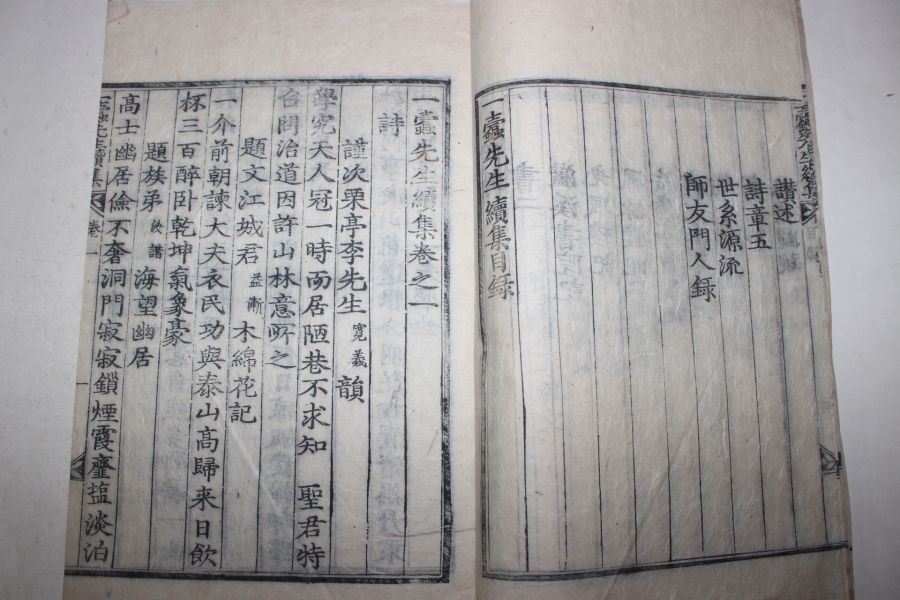 讃述
詩章五
世系源流
師友門人録
一蠹先生續集目録
一蠹先生續集卷之一
詩
謹次栗亭李先生寛義韻
學究天人冠一時而居陋巷不求知 聖君特
召問治道因許山林意所之
題文江城君益漸木綿花記
一介前朝諫大夫衣民功與泰山高歸来日飲
杯三百醉卧乾坤氣象豪
題族弟 海望幽居
高士幽居儉不奢洞門寂寂鎖煙霞虀塩淡泊
一蠹先生續集 卷一